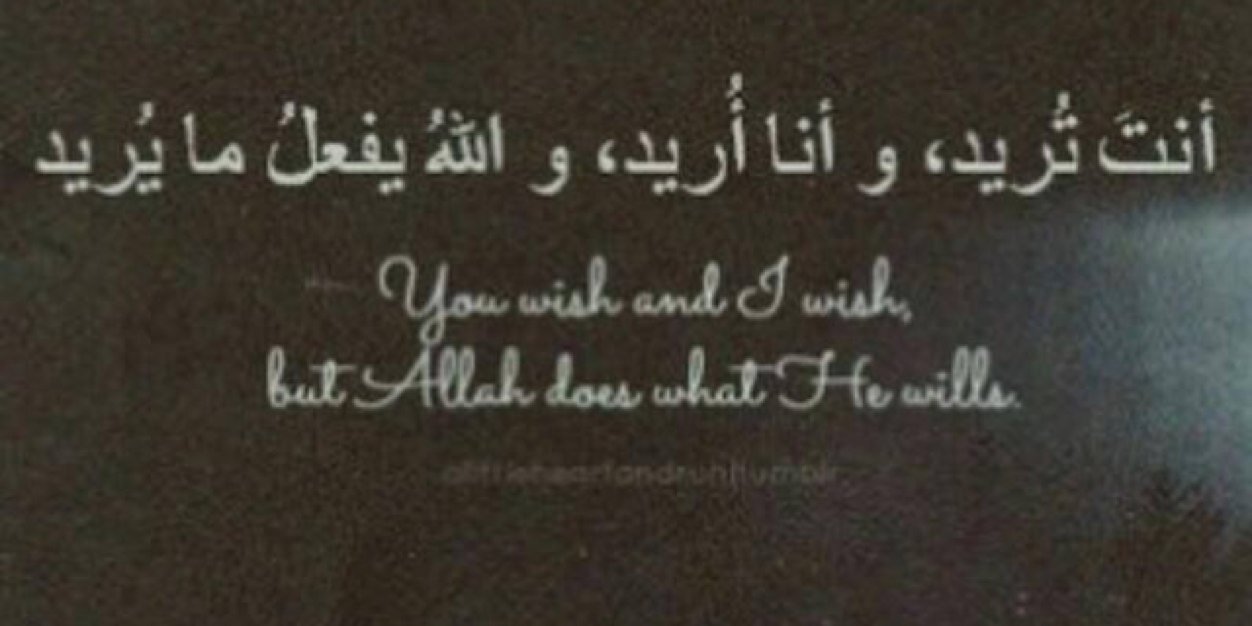 أنتَ تُريد، و أنا أُريد، و اللهُ يفعلُ ما يُريد
You wish and I wish,
but Allah does what He wills.